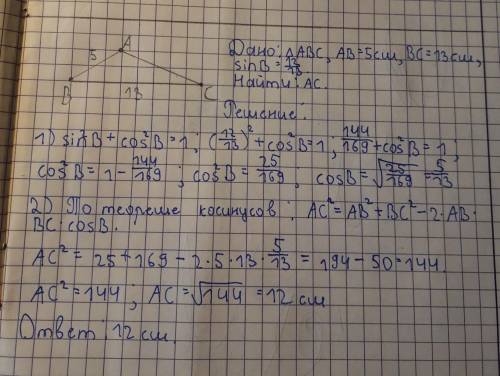 A
5
B
13
C
Дано: △ABC, AB=5см, BC=13см,
sinB=12/13
Найти: AC.
Решение:
1) sin²B+cos²B=1; (12/13)²+cos²B=1; 144/169+cos²B=1;
cos²B=1-144/169; cos²B=25/169; cosB=√25/169=5/13
2) По теореме косинусов: AC²=AB²+BC²-2·AB·
BC·cosB.
AC²=25+169-2·5·13·5/13=194-50=144.
AC²=144; AC=√144=12 см
Ответ: 12 см.